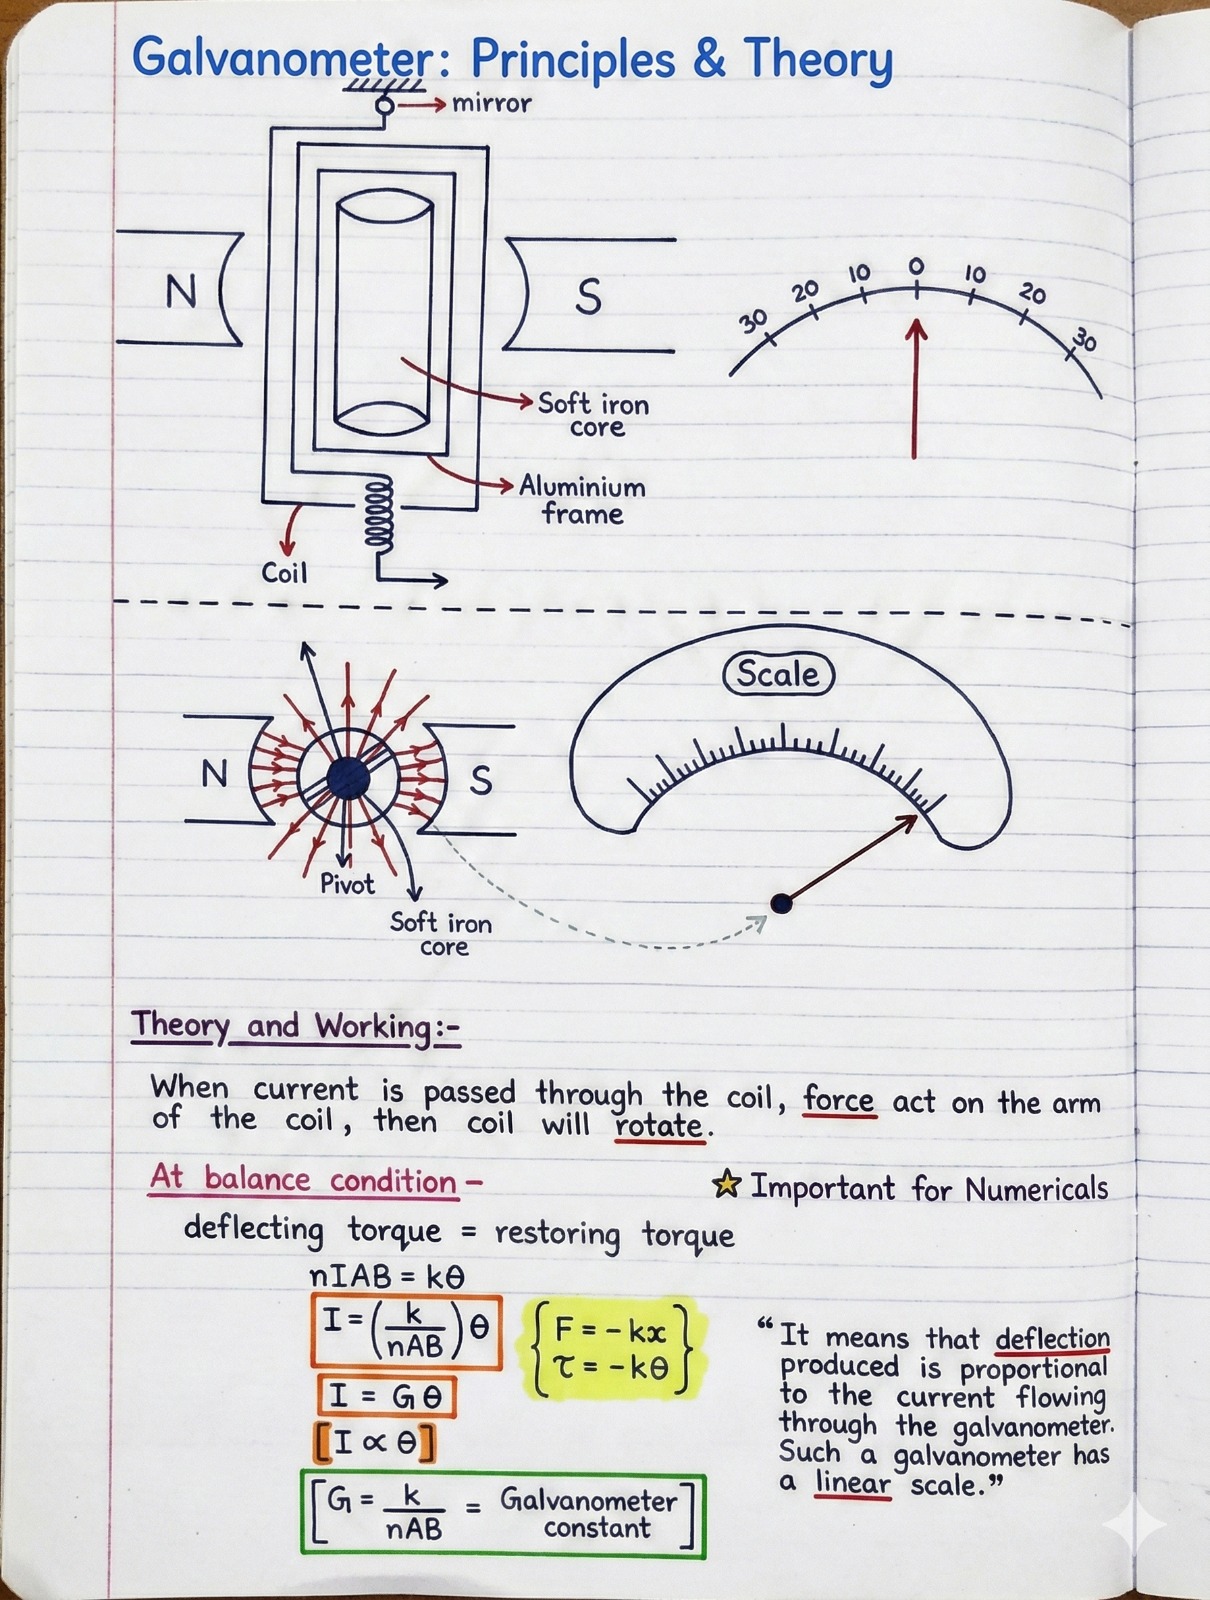 Galvanometer: Principles & Theory
mirror
N
S
30 20 10 0 10 20 30
Soft iron
core
Aluminium
frame
Coil
Scale
N
S
Pivot
Soft iron
core
Theory and Working:-
When current is passed through the coil, force act on the arm
of the coil, then coil will rotate.
At balance condition –
☆ Important for Numericals
deflecting torque = restoring torque
nIAB = kθ
I = (k/nAB) θ
{F = -kx
τ = -kθ}
I = Gθ
[I ∝ θ]
[G = k/nAB = Galvanometer
constant]
“It means that deflection
produced is proportional
to the current flowing
through the galvanometer.
Such a galvanometer has
a linear scale.”